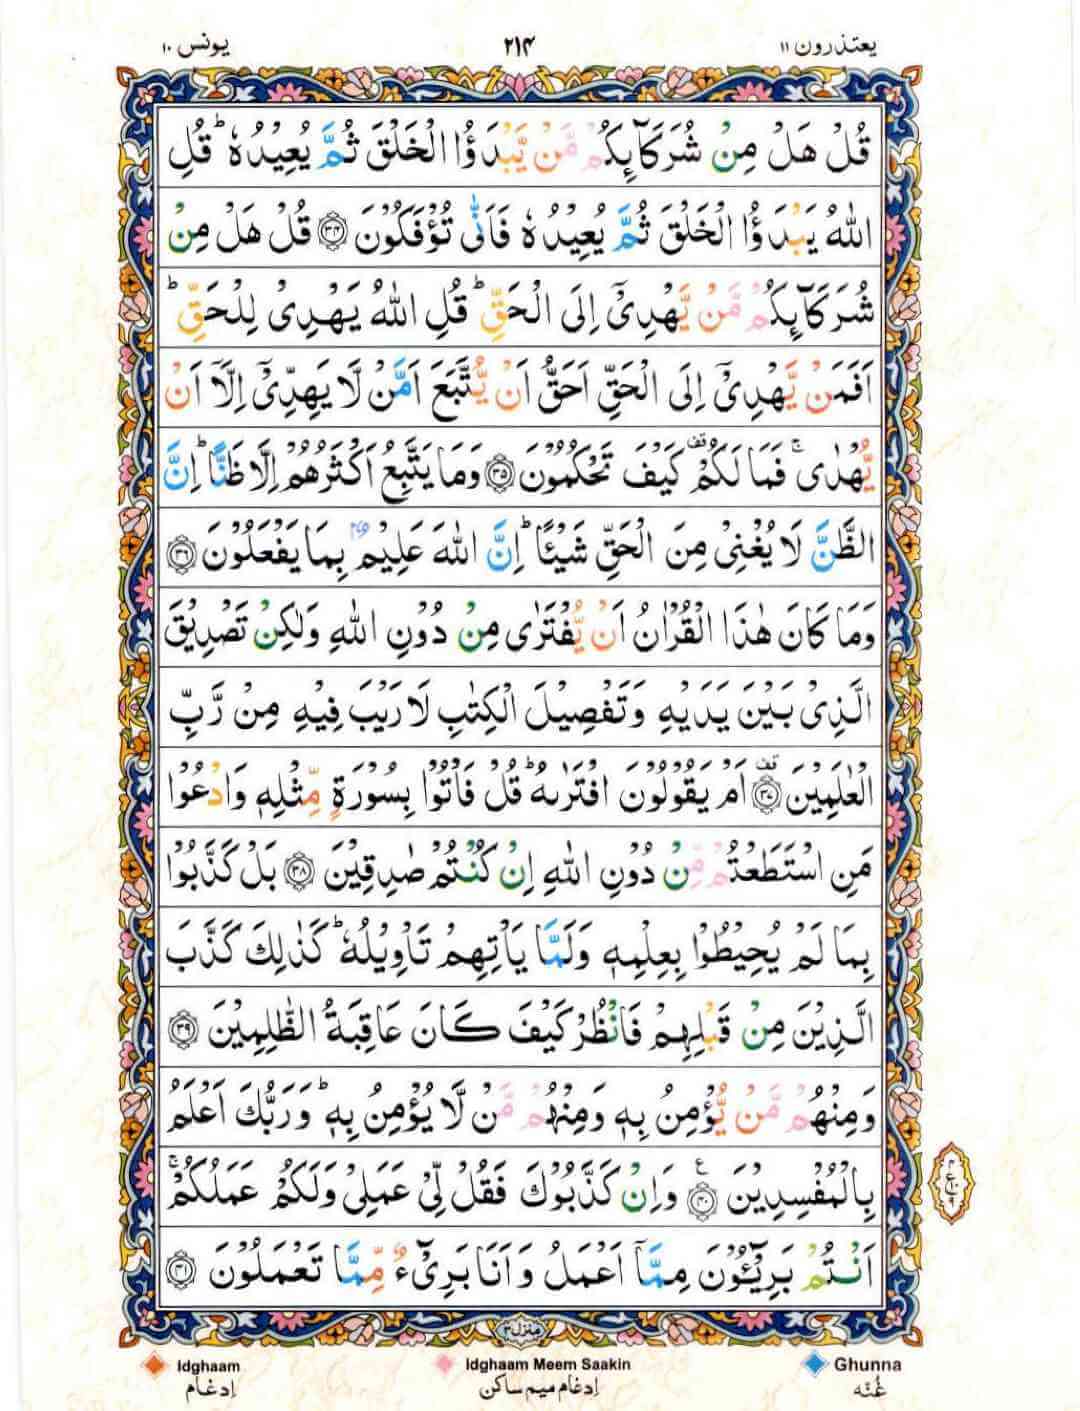 یعتذرون ۱۱
۲۱۴
یونس ۱۰
قُلْ هَلْ مِنْ شُرَكَآىِٕكُمْ مَّنْ یَّبْدَؤُا الْخَلْقَ ثُمَّ یُعِیْدُهٗ ؕ قُلِ
اللّٰهُ یَبْدَؤُا الْخَلْقَ ثُمَّ یُعِیْدُهٗ فَاَنّٰى تُؤْفَكُوْنَ ﴿۳۴﴾ قُلْ هَلْ مِنْ
شُرَكَآىِٕكُمْ مَّنْ یَّهْدِیْۤ اِلَى الْحَقِّ ؕ قُلِ اللّٰهُ یَهْدِیْ لِلْحَقِّ ؕ
اَفَمَنْ یَّهْدِیْۤ اِلَى الْحَقِّ اَحَقُّ اَنْ یُّتَّبَعَ اَمَّنْ لَّا یَهِدِّیْۤ اِلَّاۤ اَنْ
یُّهْدٰى ۚ فَمَا لَكُمْ ۫ كَیْفَ تَحْكُمُوْنَ ﴿۳۵﴾ وَمَا یَتَّبِعُ اَكْثَرُهُمْ اِلَّا ظَنًّا ؕ اِنَّ
الظَّنَّ لَا یُغْنِیْ مِنَ الْحَقِّ شَیْـًٔا ؕ اِنَّ اللّٰهَ عَلِیْمٌۢ بِمَا یَفْعَلُوْنَ ﴿۳۶﴾
وَمَا كَانَ هٰذَا الْقُرْاٰنُ اَنْ یُّفْتَرٰى مِنْ دُوْنِ اللّٰهِ وَلٰكِنْ تَصْدِیْقَ
الَّذِیْ بَیْنَ یَدَیْهِ وَتَفْصِیْلَ الْكِتٰبِ لَا رَیْبَ فِیْهِ مِنْ رَّبِّ
الْعٰلَمِیْنَ ﴿۳۷﴾ قف اَمْ یَقُوْلُوْنَ افْتَرٰىهُ ؕ قُلْ فَاْتُوْا بِسُوْرَةٍ مِّثْلِهٖ وَادْعُوْا
مَنِ اسْتَطَعْتُمْ مِّنْ دُوْنِ اللّٰهِ اِنْ كُنْتُمْ صٰدِقِیْنَ ﴿۳۸﴾ بَلْ كَذَّبُوْا
بِمَا لَمْ یُحِیْطُوْا بِعِلْمِهٖ وَلَمَّا یَاْتِهِمْ تَاْوِیْلُهٗ ؕ كَذٰلِكَ كَذَّبَ
الَّذِیْنَ مِنْ قَبْلِهِمْ فَانْظُرْ كَیْفَ كَانَ عَاقِبَةُ الظّٰلِمِیْنَ ﴿۳۹﴾
وَمِنْهُمْ مَّنْ یُّؤْمِنُ بِهٖ وَمِنْهُمْ مَّنْ لَّا یُؤْمِنُ بِهٖ ؕ وَرَبُّكَ اَعْلَمُ
بِالْمُفْسِدِیْنَ ﴿۴۰﴾ ع وَاِنْ كَذَّبُوْكَ فَقُلْ لِّیْ عَمَلِیْ وَلَكُمْ عَمَلُكُمْ ۚ
اَنْتُمْ بَرِیْٓـُٔوْنَ مِمَّاۤ اَعْمَلُ وَاَنَا بَرِیْٓءٌ مِّمَّا تَعْمَلُوْنَ ﴿۴۱﴾
منزل ۳
Idghaam
اِدغام
Idghaam Meem Saakin
اِدغام میم ساکن
Ghunna
غُنّه